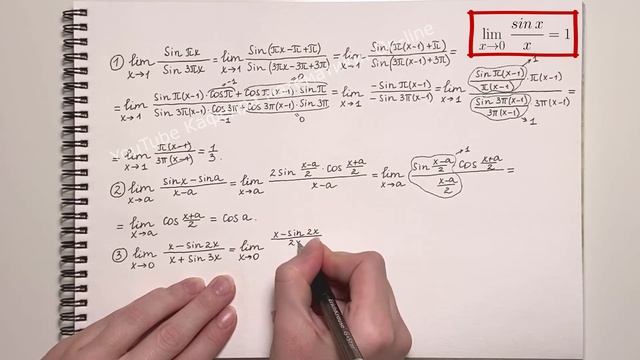 lim x→0 sin x / x = 1
① lim x→1 sin πx / sin 3πx = lim x→1 sin(πx−π+π) / sin(3πx−3π+3π) = lim x→1 sin(π(x−1)+π) / sin(3π(x−1)+3π) =
= lim x→1 sin π(x−1)·cos π + cos π(x−1)·sin π / sin 3π(x−1)·cos 3π + cos 3π(x−1)·sin 3π = lim x→1 −sin π(x−1) / −sin 3π(x−1) = lim x→1 sin π(x−1) / π(x−1) · π(x−1) / sin 3π(x−1) / 3π(x−1) · 3π(x−1) =
= lim x→1 π(x−1) / 3π(x−1) = 1/3.
② lim x→a sin x − sin a / x−a = lim x→a 2 sin x−a/2 · cos x+a/2 / x−a = lim x→a sin x−a/2 cos x+a/2 / x−a/2 =
= lim x→a cos x+a/2 = cos a.
③ lim x→0 x − sin 2x / x + sin 3x = lim x→0 x − sin 2x / 2x
YouTube